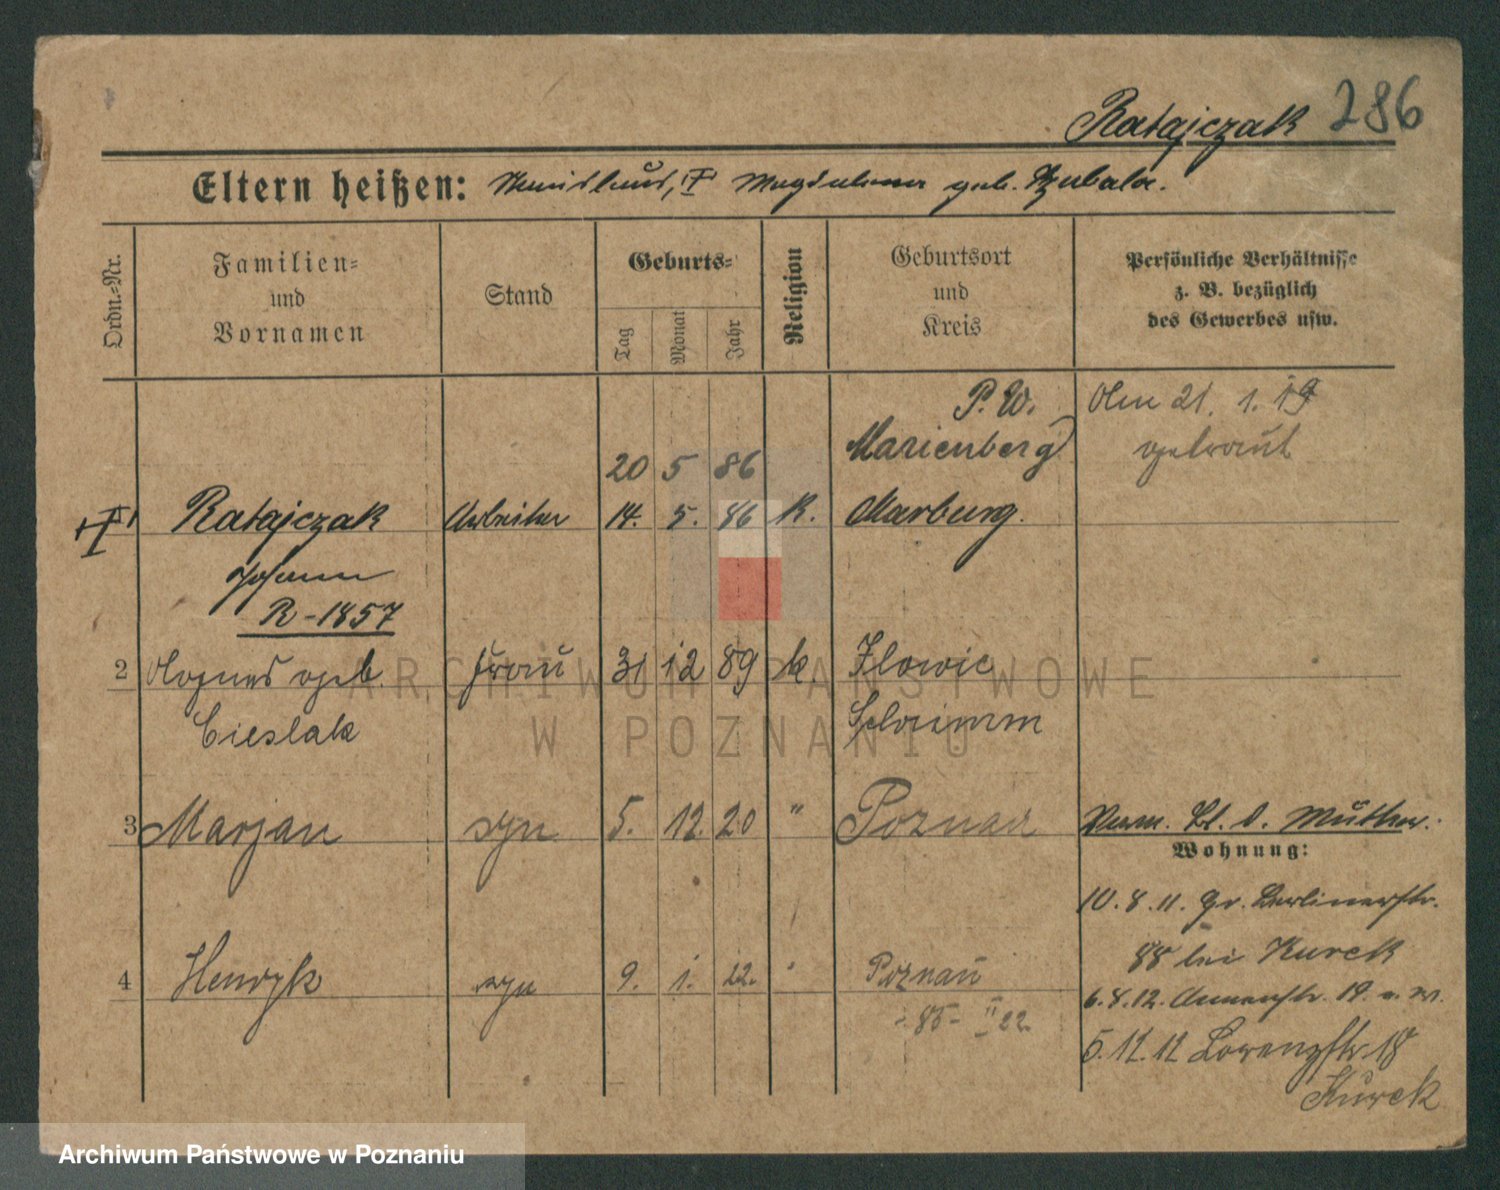 Ratajczak 286
Eltern heißen: Stanislaus, Magdalena geb. Szubala.
Ordn.-Nr.
Familien-
und
Vornamen
Stand
Geburts-
Tag
Monat
Jahr
Religion
Geburtsort
und
Kreis
Persönliche Verhältnisse
z. B. bezüglich
des Gewerbes usw.
P. W. Am 21. 1. 19
Marienberg getraut
20 5 86
Ratajczak Arbeiter 14. 5. 86 K. Marburg.
Johann
R-1857
2 Agnes geb. Frau 31 12 89 k. Ilowic
Cieslak Schrimm
3 Marjan syn 5. 12. 20 " Poznań Verm. Bl. d. Mutter.
Wohnung:
10. 8. 11. Gr. Berlinerstr.
88 bei Kurek
4 Henryk syn 9. 1. 22. " Poznań
6. 8. 12. Annenstr. 19.
85 - II 22
5. 12. 12 Lorenzstr. 18
Kurek
ARCHIWUM PAŃSTWOWE
W POZNANIU
Archiwum Państwowe w Poznaniu